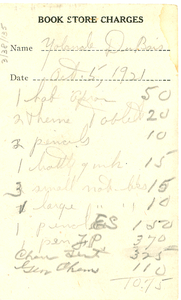 BOOK STORE CHARGES
Name Yolande Du Bois
Date Oct. 5, 1921
1 50
2 theme tablets 20
2 pencils 10
1 bottle ink 15
3 small note bks 15
1 large " " 10
1 ES 150
1 pen JP 370
Chem 325
Gen Chem 110
10.75